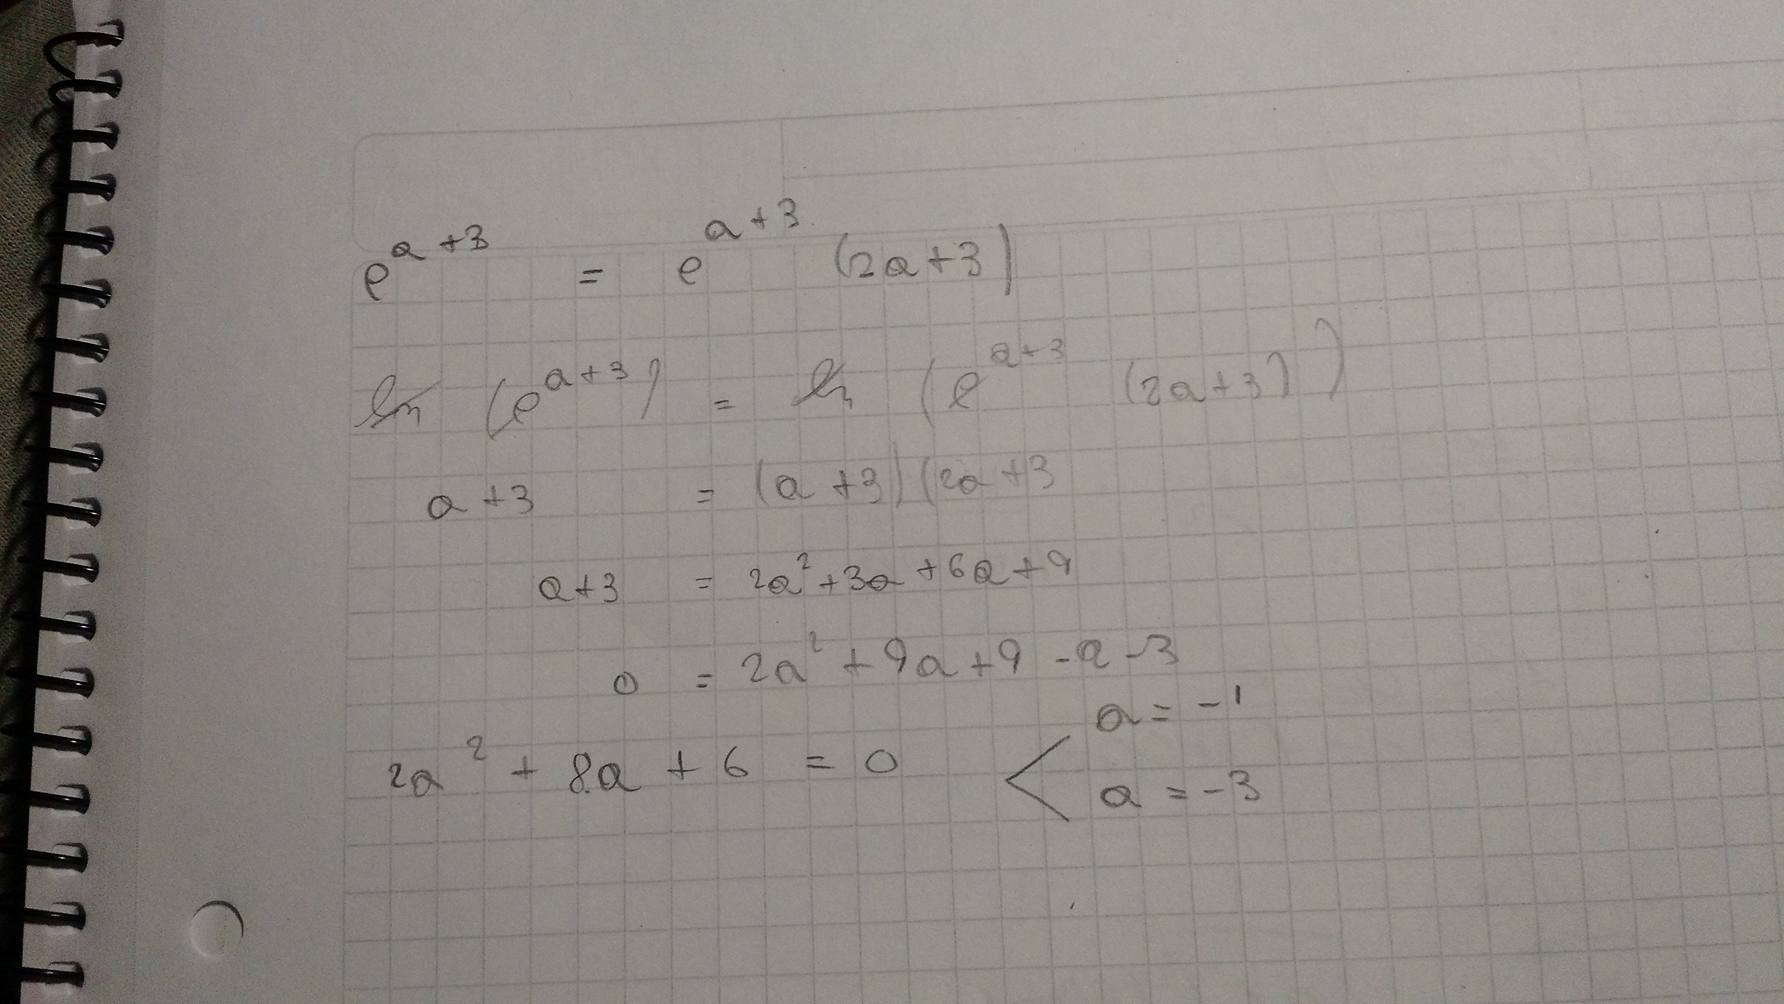 e^{a+3} = e^{a+3} (2a+3)
ln (e^{a+3}) = ln (e^{a+3} (2a+3))
a+3 = (a+3)(2a+3
a+3 = 2a²+3a+6a+9
0 = 2a²+9a+9-a-3
2a²+8a+6=0 < a=-1
a=-3